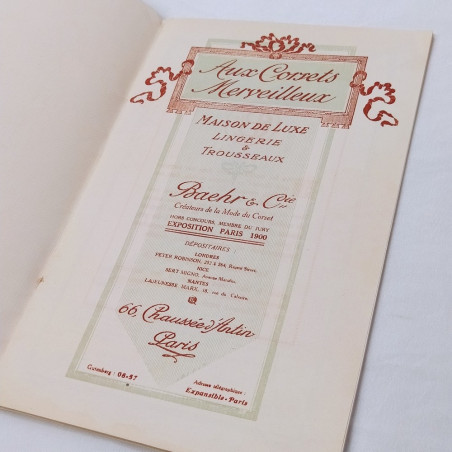 Aux Corsets
Merveilleux
MAISON DE LUXE
LINGERIE
&
TROUSSEAUX
Baehr & Cie
Créateurs de la Mode du Corset
HORS CONCOURS, MEMBRE DU JURY
EXPOSITION PARIS 1900
DÉPOSITAIRES
LONDRES
PETER ROBINSON, 252 à 264, Regent Street.
NICE
BERT MEGNO, Avenue Masséna.
NANTES
LAJEUNESSE MARX, 18, rue du Calvaire.
66, Chaussée d'Antin
Paris
Gutenberg : 08-57
Adresse télégraphique :
Expansible-Paris